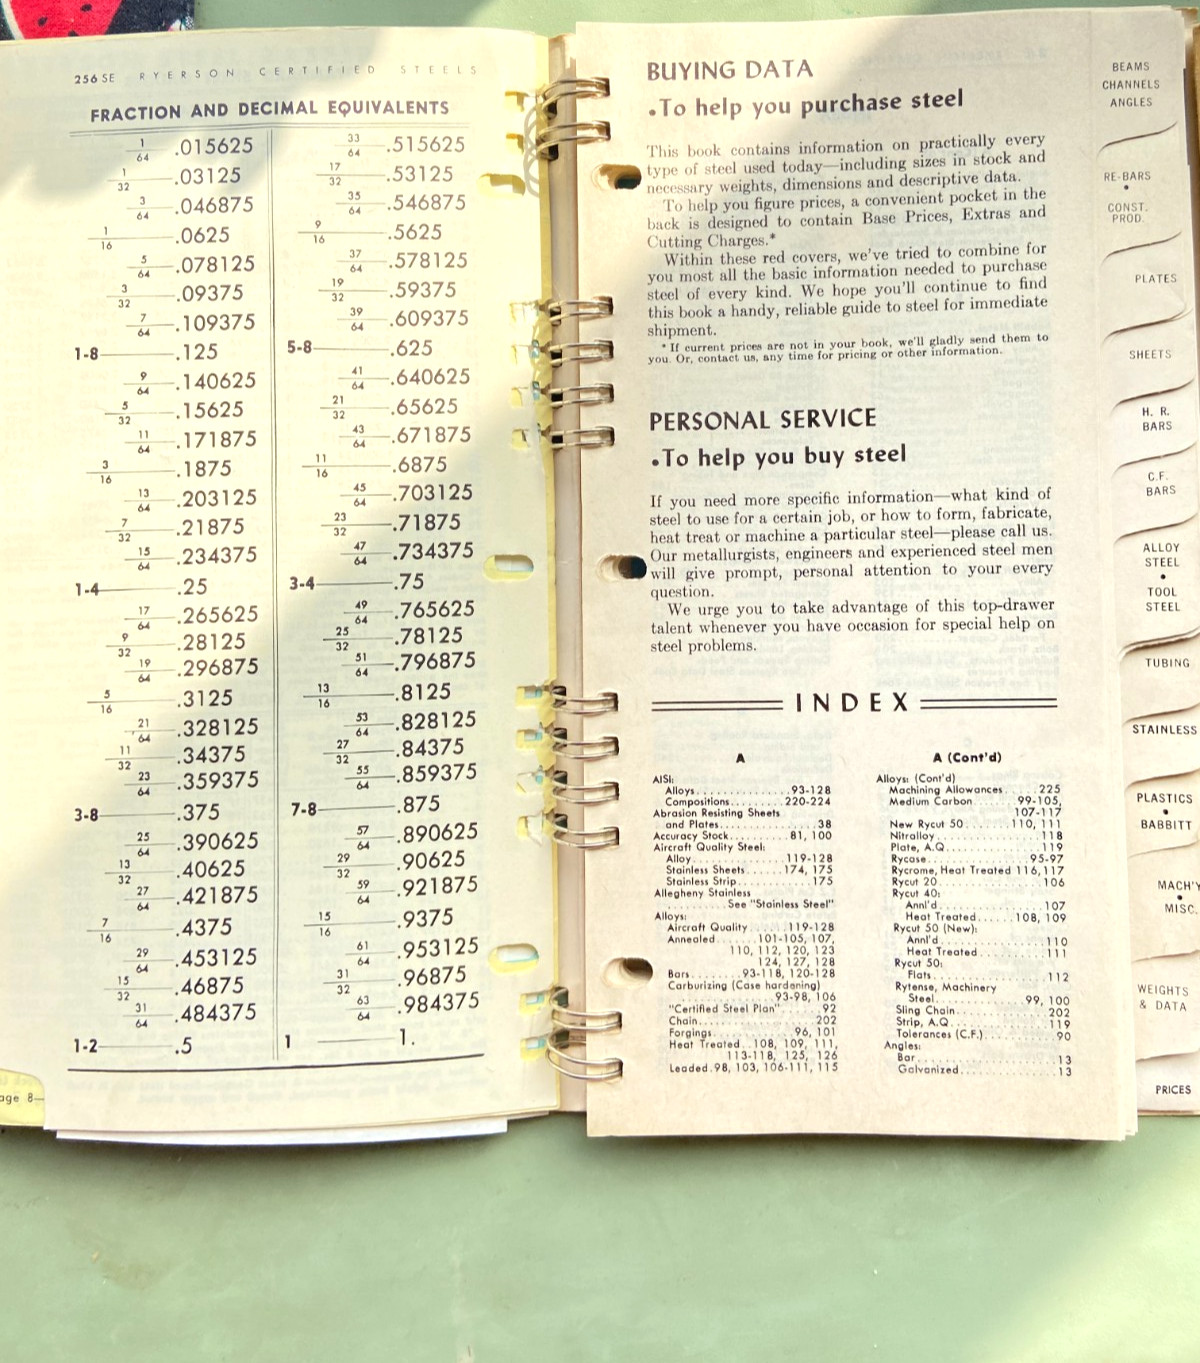 256 SE RYERSON CERTIFIED STEELS
FRACTION AND DECIMAL EQUIVALENTS
1/64 .015625
1/32 .03125
3/64 .046875
1/16 .0625
5/64 .078125
3/32 .09375
7/64 .109375
1-8 .125
9/64 .140625
5/32 .15625
11/64 .171875
3/16 .1875
13/64 .203125
7/32 .21875
15/64 .234375
1-4 .25
17/64 .265625
9/32 .28125
19/64 .296875
5/16 .3125
21/64 .328125
11/32 .34375
23/64 .359375
3-8 .375
25/64 .390625
13/32 .40625
27/64 .421875
7/16 .4375
29/64 .453125
15/32 .46875
31/64 .484375
1-2 .5
33/64 .515625
17/32 .53125
35/64 .546875
9/16 .5625
37/64 .578125
19/32 .59375
39/64 .609375
5-8 .625
41/64 .640625
21/32 .65625
43/64 .671875
11/16 .6875
45/64 .703125
23/32 .71875
47/64 .734375
3-4 .75
49/64 .765625
25/32 .78125
51/64 .796875
13/16 .8125
53/64 .828125
27/32 .84375
55/64 .859375
7-8 .875
57/64 .890625
29/32 .90625
59/64 .921875
15/16 .9375
61/64 .953125
31/32 .96875
63/64 .984375
1 1.
age 8—
BUYING DATA
•To help you purchase steel
This book contains information on practically every
type of steel used today—including sizes in stock and
necessary weights, dimensions and descriptive data.
To help you figure prices, a convenient pocket in the
back is designed to contain Base Prices, Extras and
Cutting Charges.*
Within these red covers, we've tried to combine for
you most all the basic information needed to purchase
steel of every kind. We hope you'll continue to find
this book a handy, reliable guide to steel for immediate
shipment.
* If current prices are not in your book, we'll gladly send them to
you. Or, contact us, any time for pricing or other information.
PERSONAL SERVICE
•To help you buy steel
If you need more specific information—what kind of
steel to use for a certain job, or how to form, fabricate,
heat treat or machine a particular steel—please call us.
Our metallurgists, engineers and experienced steel men
will give prompt, personal attention to your every
question.
We urge you to take advantage of this top-drawer
talent whenever you have occasion for special help on
steel problems.
INDEX
A
AISI:
Alloys 93-128
Compositions 220-224
Abrasion Resisting Sheets
and Plates 38
Accuracy Stock 81, 100
Aircraft Quality Steel:
Alloy 119-128
Stainless Sheets 174, 175
Stainless Strip 175
Allegheny Stainless
See "Stainless Steel"
Alloys:
Aircraft Quality 119-128
Annealed 101-105, 107,
110, 112, 120, 123
124, 127, 128
Bars 93-118, 120-128
Carburizing (Case hardening)
93-98, 106
"Certified Steel Plan" 92
Chain 202
Forgings 96, 101
Heat Treated 108, 109, 111,
113-118, 125, 126
Leaded 98, 103, 106-111, 115
A (Cont'd)
Alloys: (Cont'd)
Machining Allowances 225
Medium Carbon 99-105,
107-117
New Rycut 50 110, 111
Nitralloy 118
Plate, A.Q. 119
Rycase 95-97
Rycrome, Heat Treated 116, 117
Rycut 20 106
Rycut 40:
Annl'd 107
Heat Treated 108, 109
Rycut 50 (New):
Annl'd 110
Heat Treated 111
Rycut 50:
Flats 112
Rytense, Machinery
Steel 99, 100
Sling Chain 202
Strip, A.Q. 119
Tolerances (C.F.) 90
Angles:
Bar 13
Galvanized 13
BEAMS
CHANNELS
ANGLES
RE-BARS
•
CONST.
PROD.
PLATES
SHEETS
H. R.
BARS
C.F.
BARS
ALLOY
STEEL
•
TOOL
STEEL
TUBING
STAINLESS
PLASTICS
•
BABBITT
MACH'Y
•
MISC.
WEIGHTS
& DATA
PRICES